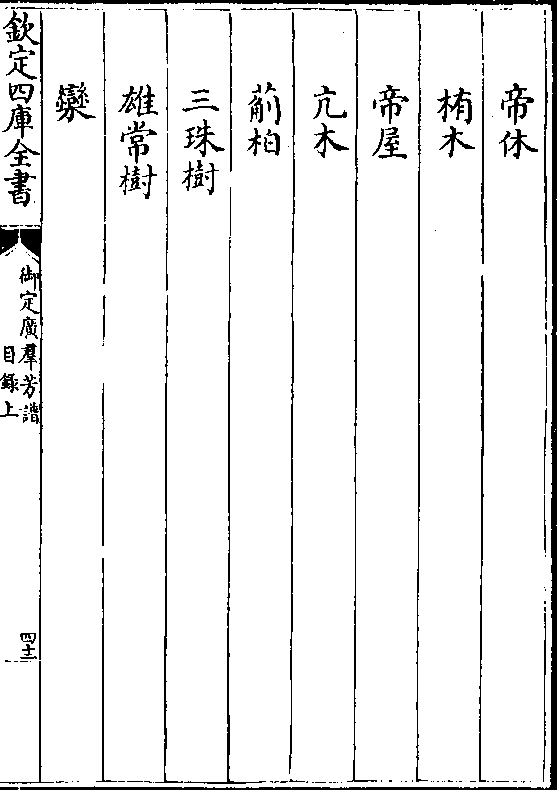 帝休
栯木
帝屋
亢木
葪柏
三珠樹
雄常樹
欒
欽定四庫全書
御定廣羣芳譜
目録上
四十二